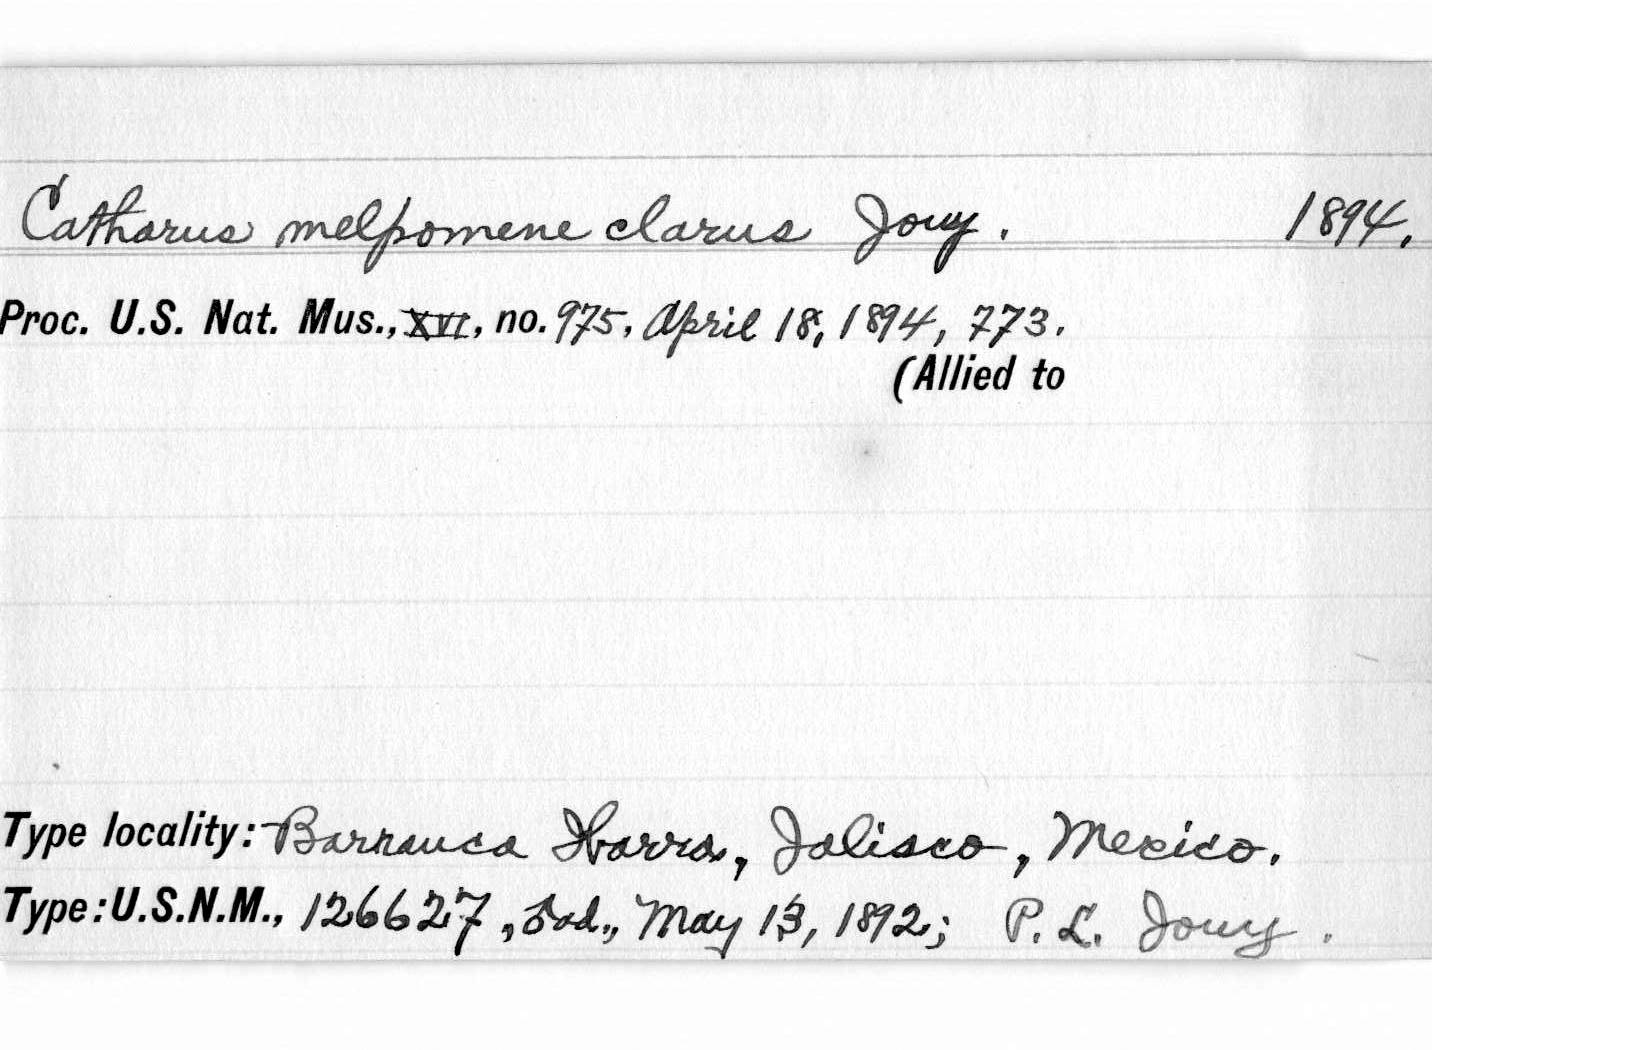 Catharus melpomene clarus Jouy. 1894.
Proc. U.S. Nat. Mus., XVI, no. 975, April 18, 1894, 773.
(Allied to
Type locality: Barranca Ibarra, Jalisco, Mexico.
Type: U.S.N.M., 126627, ad., May 13, 1892; P. L. Jouy.